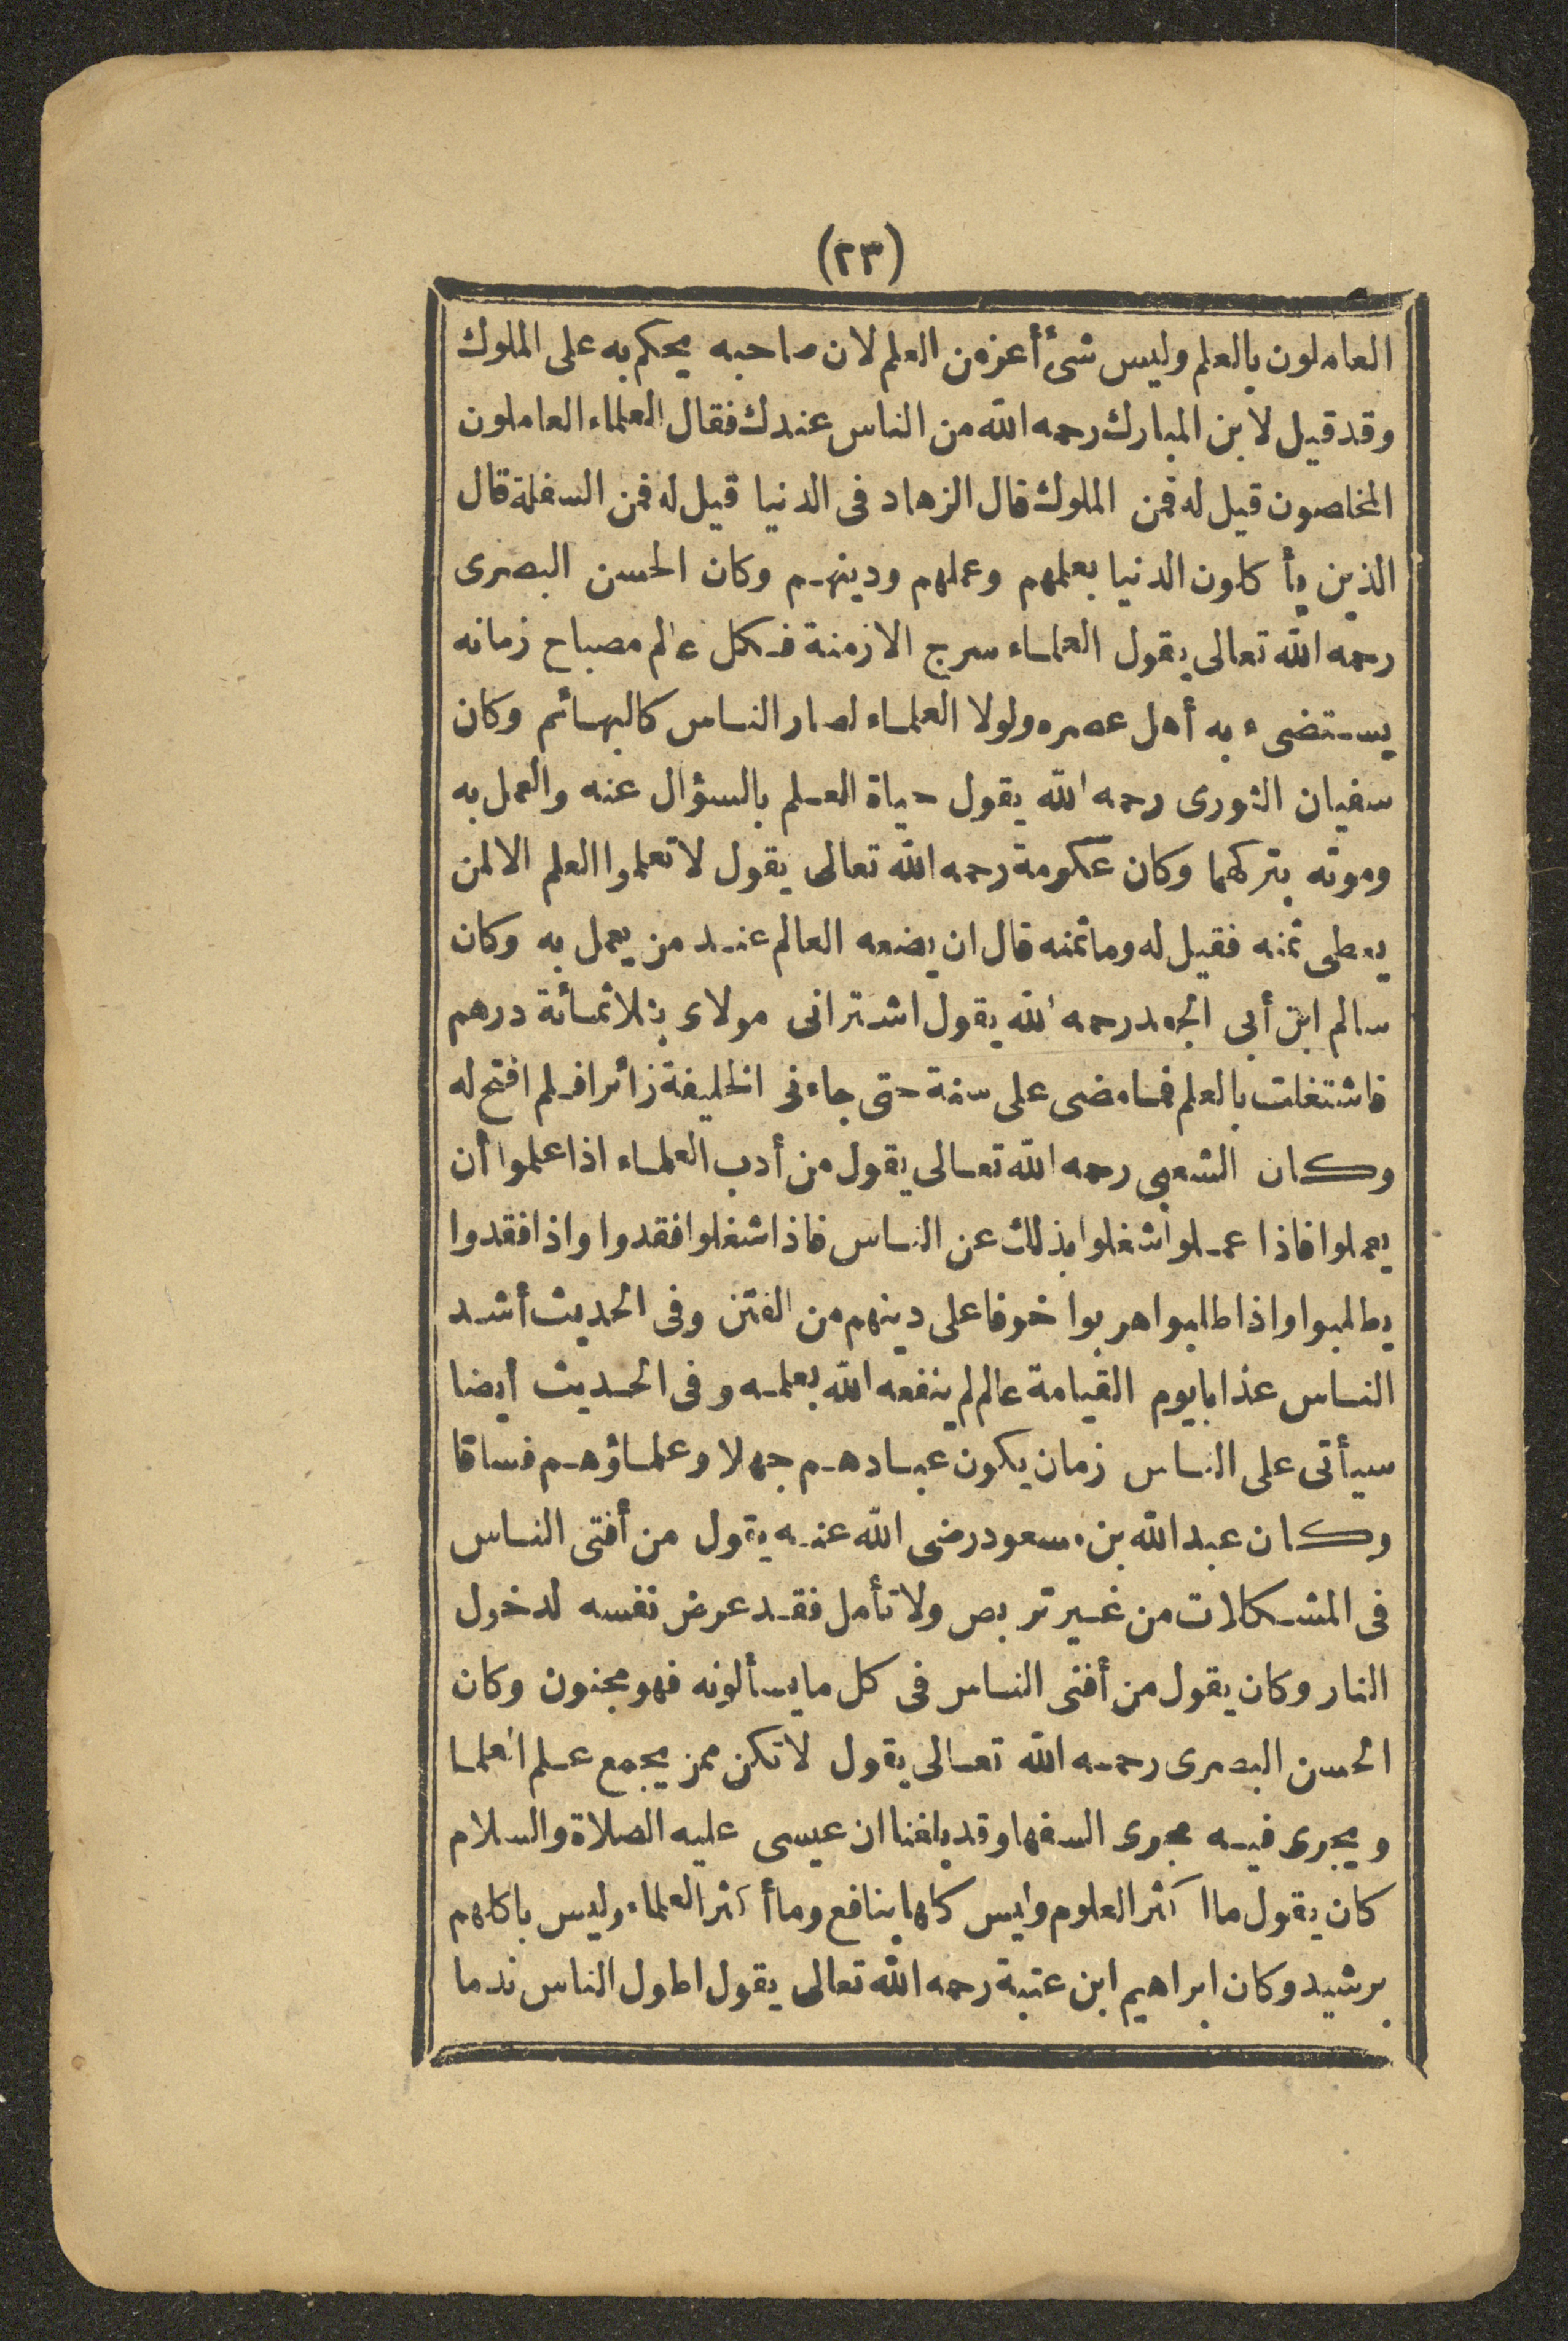 (٢٣)
العاملون بالعلم وليس شئ أعز من العلم لان صاحبه يحكم به على الملوك
وقد قيل لابن المبارك رحمه الله من الناس عندك فقال العلماء العاملون
المخلصون قيل له فمن الملوك قال الزهاد فى الدنيا قيل له فمن السفلة قال
الذين يأكلون الدنيا بعلمهم وعملهم ودينهم وكان الحسن البصرى
رحمه الله تعالى يقول العلماء سرج الازمنة فكل عالم مصباح زمانه
يستضىء به أهل عصره ولولا العلماء لصار الناس كالبهائم وكان
سفيان الثورى رحمه الله يقول حياة العلم بالسؤال عنه والعمل به
وموته بتركهما وكان عكومة رحمه الله تعالى يقول لا تعلموا العلم الا لمن
يعطى ثمنه فقيل له وما ثمنه قال ان يضعه العالم عند من يعمل به وكان
سالم ابن أبى الجعد رحمه الله يقول اشترانى مولاى بثلاثمائة درهم
فاشتغلت بالعلم فما مضى على سنة حتى جاءنى الخليفة زائرا فلم افتح له
وكان الشعبى رحمه الله تعالى يقول من أدب العلماء اذا علموا أن
يعملوا فاذا عملوا شغلوا بذلك عن الناس فاذا شغلوا فقدوا واذا فقدوا
يطلبوا واذا طلبوا هربوا خوفا على دينهم من الفتن وفى الحديث أشد
الناس عذابا يوم القيامة عالم لم ينفعه الله بعلمه وفى الحديث أيضا
سيأتى على الناس زمان يكون عبادهم جهلا وعلماؤهم فساقا
وكان عبد الله بن مسعود رضى الله عنه يقول من أفتى الناس
فى المشكلات من غير تربص ولا تأمل فقد عرض نفسه لدخول
النار وكان يقول من أفتى الناس فى كل ما يسألونه فهو مجنون وكان
الحسن البصرى رحمه الله تعالى يقول لا تكن ممن يجمع علم العلما
ويجرى فيه مجرى السفها وقد بلغنا ان عيسى عليه الصلاة والسلام
كان يقول ما اكثر العلوم وليس كلها بنافع وما أكثر العلماء وليس باكلهم
برشيد وكان ابراهيم ابن عتبة رحمه الله تعالى يقول اطول الناس ندما